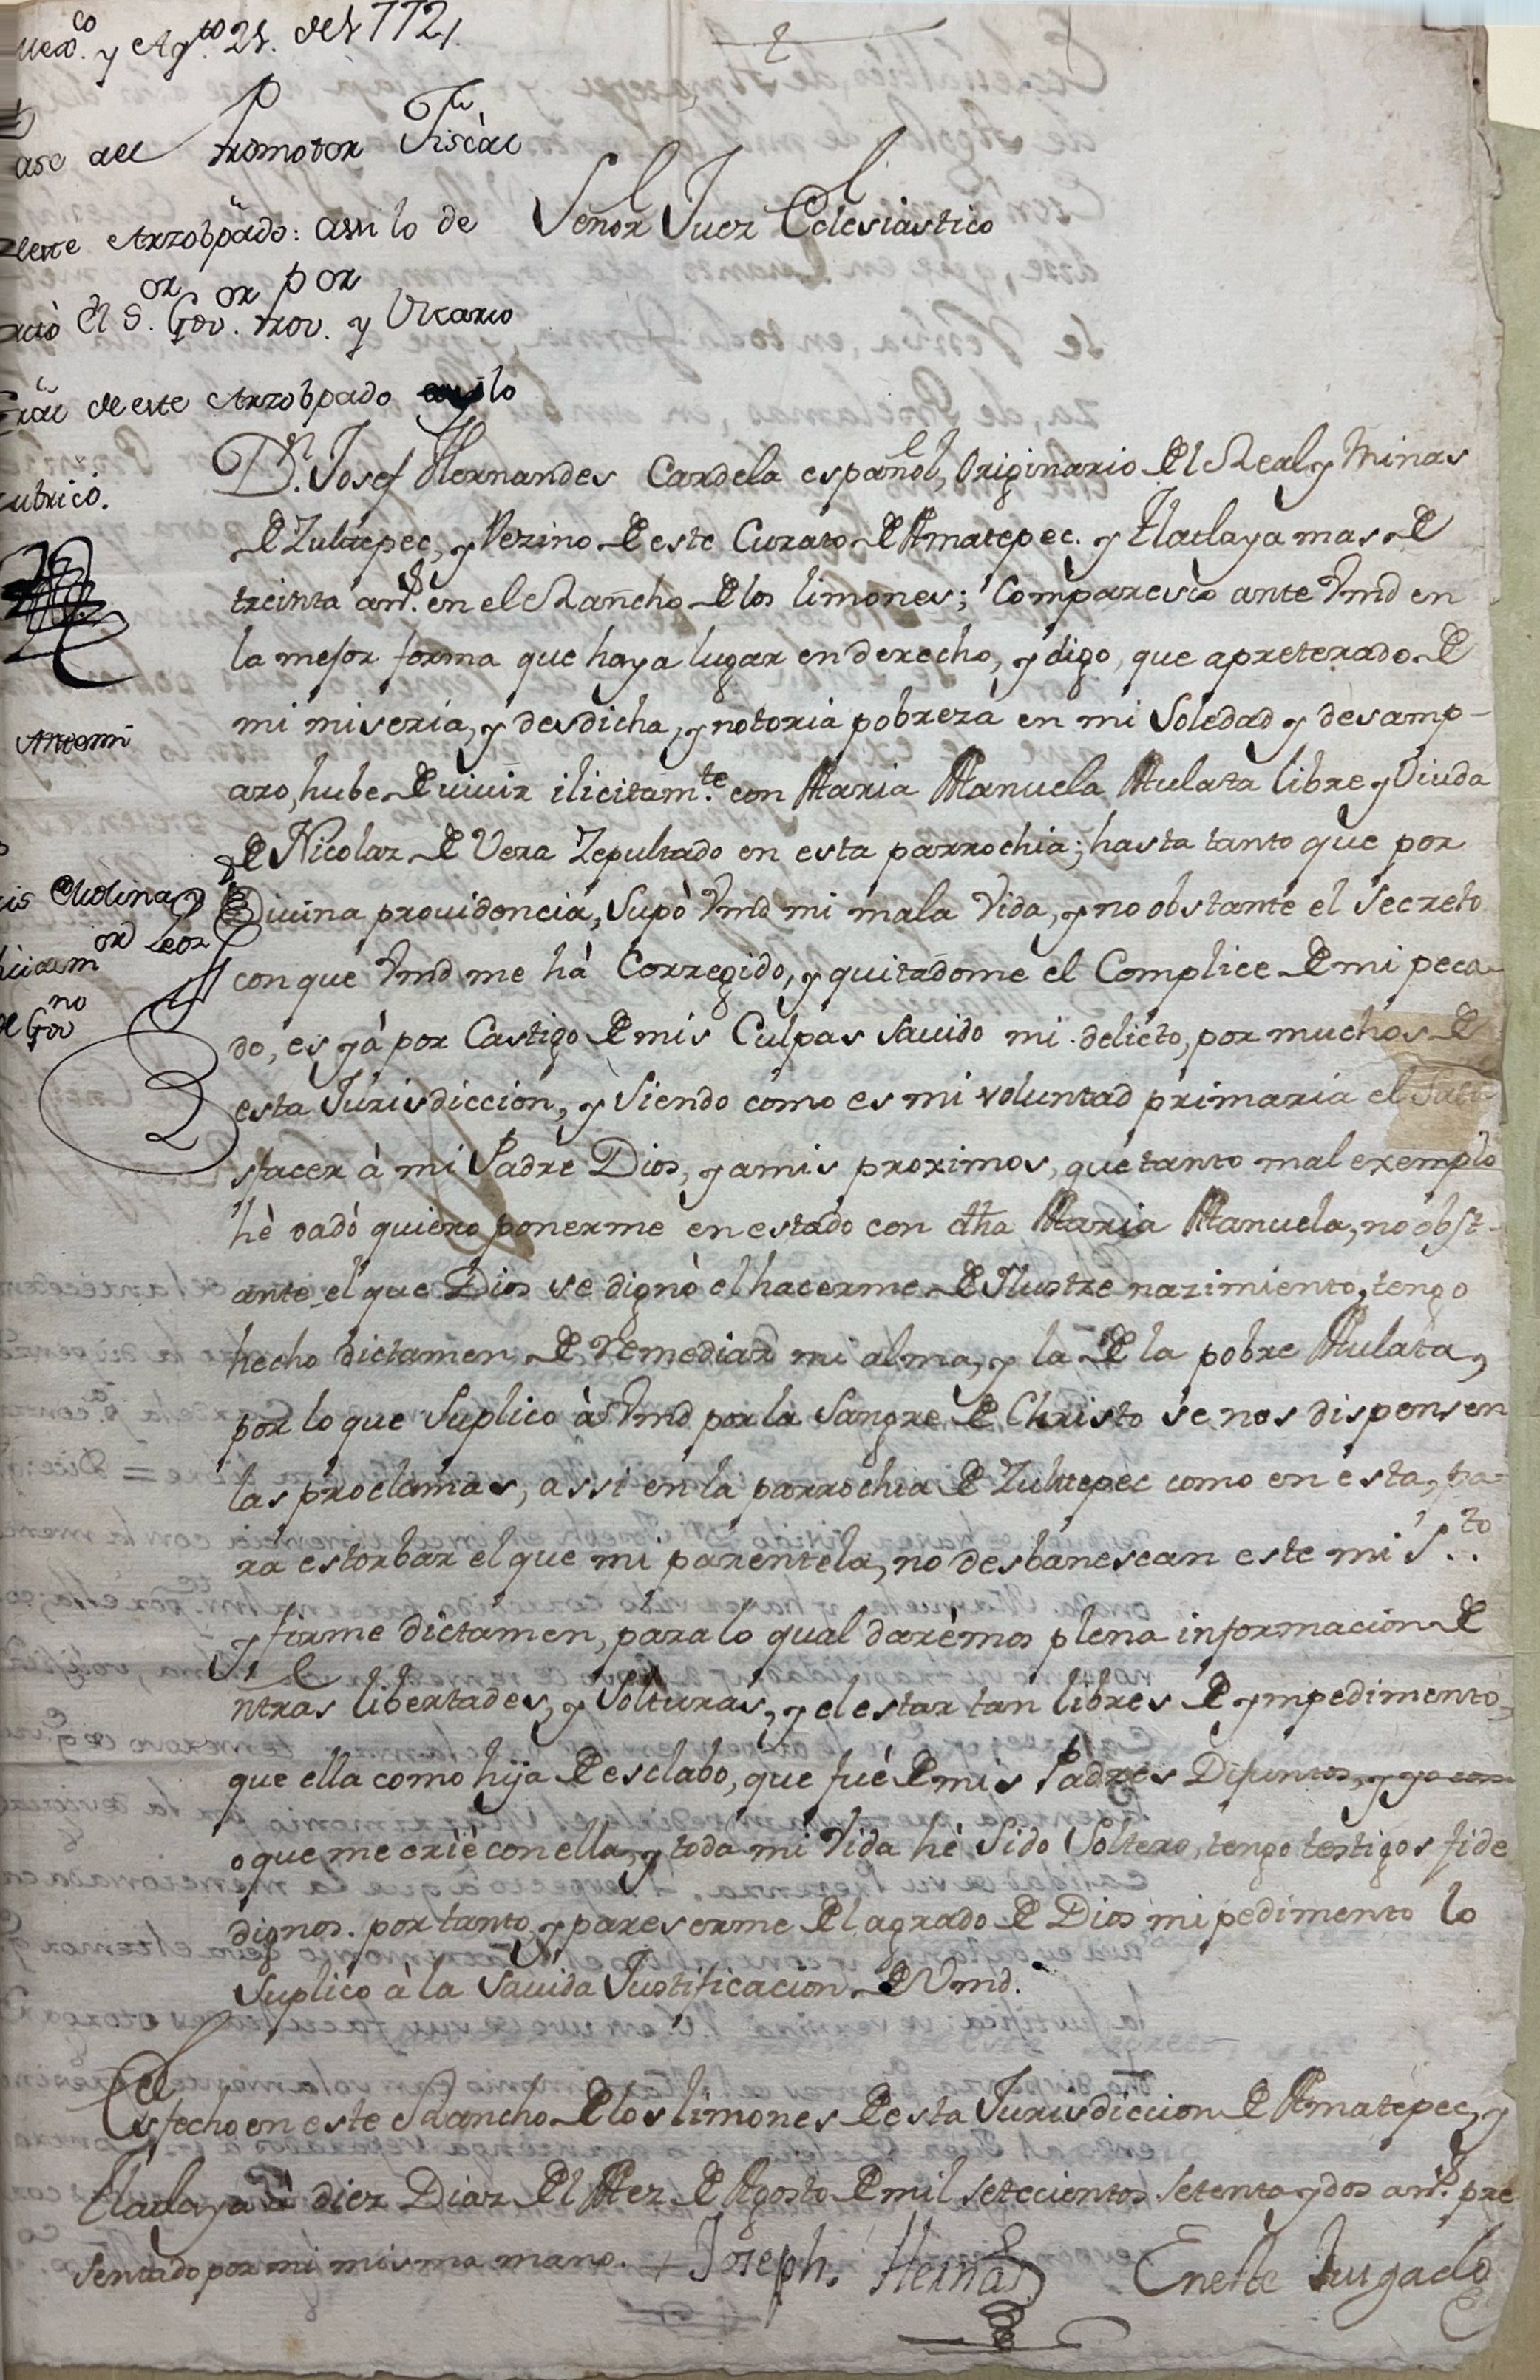 Mexco. y Agto 21. de 1772,
ase al Promotor Fiscàl
deste Arzobpado: assi lo de
cretò el Sor. Gòvor. Provor. y Vicario
Gràl de este Arzobpado
rubricò.
Antemi
Molina y
Leon
no
de Gov
2
Señor Juez Eclesiastico
Dn. Josef Hernandes Cardela español, Originario del Real y Minas
de Zultepec, y Vezino de este Curato de Amatepec. y Tlatlaya mas de
treinta ans. en el Rancho de los limones; Comparesco ante Vmd en
la mejor forma que haya lugar en derecho, y digo, que apreterado de
mi miseria, y desdicha, y notoria pobreza en mi Soledad y desamp-
aro, hube de vivir ilicitamte. con Maria Manuela Mulata libre y Viuda
de Nicolaz de Vera Zepultado en esta parrochia; hasta tanto que por
Divina providencia, Supò Vmd mi mala Vida, y no obstante el Secreto
con que Vmd me hà Corregido, y quitadome el Complice de mi peca-
do, es yà por Castigo de mis Culpas Savido mi delicto, por muchos de
esta Jurisdiccion, y Siendo como es mi voluntad primaria el Sati-
sfacer à mi Padre Dios, y a mis proximos, que tanto mal exemplo
hè dadò quiero ponerme en estado con dha Maria Manuela, no obst-
ante el que Dios se dignò el hacerme de Ylustre nazimiento, tengo
hecho dictamen de remediar mi alma, y la de la pobre Mulata,
por lo que Suplico à Vmd por la Sangre de Christo se nos dispensen
las proclamas, assi en la parrochia de Zultepec como en esta, pa-
ra estorbar el que mi parentela, no desbanescan este mi Sto..
y firme dictamen, para lo qual darèmos plena informacion de
ntras libertades, y Solturas, y el estar tan libres de ympedimento,
que ella como hija de esclabo, que fuè de mis Padres Difuntos, y yo com
o que me criè con ella, y toda mi Vida hè Sido Soltero, tengo testigos fide
dignos. por tanto, y pareserme del agrado de Dios mi pedimento lo
Suplico à la Savida Justificacion de Vmd.
Es fecho en este Rancho de los limones de esta Jurisdiccion de Amatepec, y
Tlatlaya à diez Diaz del Mez de Agosto de mil setecientos setenta y dos ans. pre
sentado por mi misma mano. + Joseph. Hernaz En este Jusgado